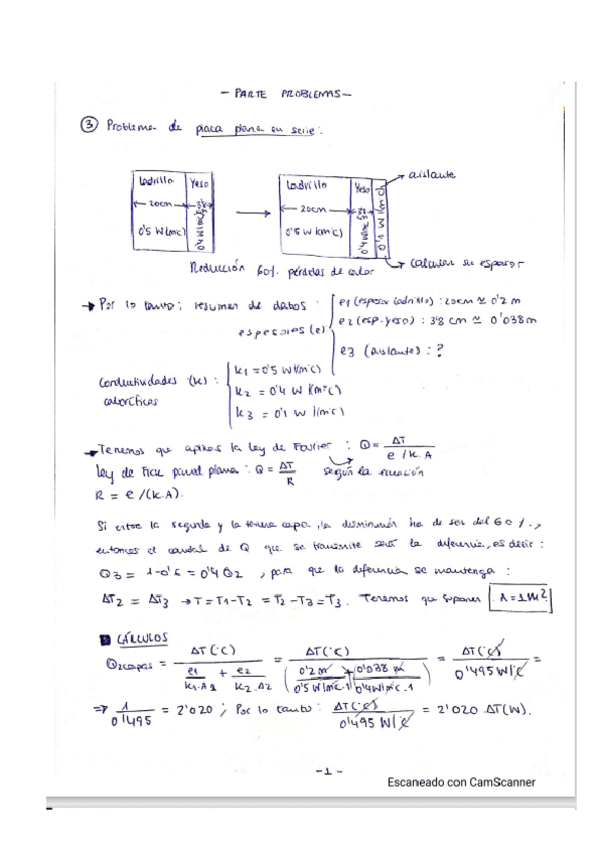 - PARTE PROBLEMAS -
③ Problema de placa plana en serie:
Ladrillo Yeso
20cm
0'5 W/(m·c) 0'4 W/(m·c)
Ladrillo Yeso
20cm
0'5 W/(m·c) 0'4 W/(m·c) 0'1 W/(m·c)
aislante
calcular su espesor
Reducción 60%. pérdidas de calor
→ Por lo tanto; resumen de datos:
espesores (e)
e1 (espesor ladrillo) : 20cm ≃ 0'2 m
e2 (esp. yeso) : 3'8 cm ≃ 0'038m
e3 (aislante) : ?
Conductividades (k) :
caloríficas
k1 = 0'5 W/(m·c)
k2 = 0'4 W/(m·c)
k3 = 0'1 W/(m·c)
→ Tenemos que aplicar la ley de Fourier : Q = ΔT / (e / k.A)
Ley de Fick pared plana : Q = ΔT / R según la ecuación
R = e /(k.A).
Si entre la segunda y la tercera capa, la disminución ha de ser del 60 %,
entonces el caudal de Q que se transmite será la diferencia, es decir:
Q3 = 1-0'6 = 0'4 Q2 , para que la diferencia se mantenga :
ΔT2 = ΔT3 → T = T1-T2 = T2-T3 = T3. Tenemos que suponer A = 1 m²
CÁLCULOS
Q2capas = ΔT(°C) / (e1/(k1.A1) + e2/(k2.A2)) = ΔT(°C) / (0'2 m/(0'5 W/m·c·1) + 0'038 m/(0'4 W/m·c·1)) = ΔT(°C) / 0'495 W/°C =
⇒ 1 / 0'495 = 2'020 ; Por lo tanto: ΔT(°C) / 0'495 W/°C = 2'020 . ΔT(W).
- 1 -
Escaneado con CamScanner